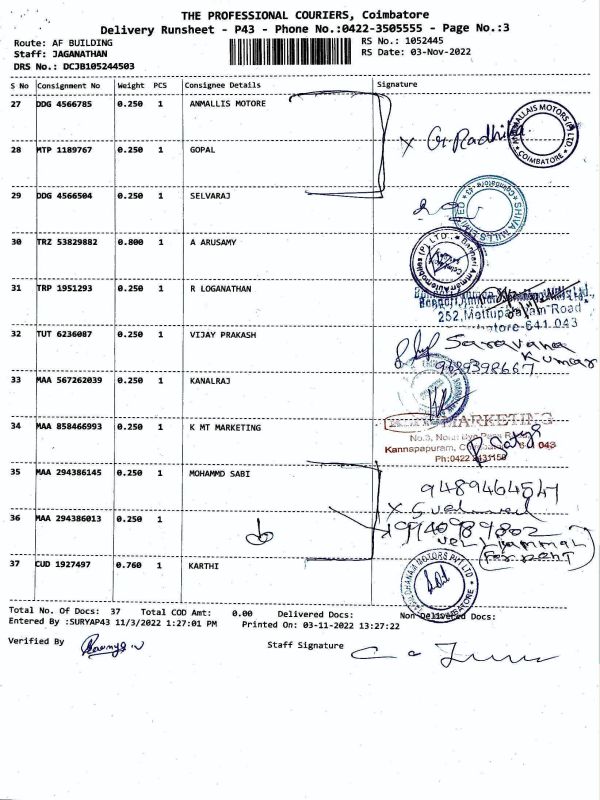 THE PROFESSIONAL COURIERS, Coimbatore
Delivery Runsheet - P43 - Phone No.:0422-3505555 - Page No.:3
Route: AF BUILDING RS No.: 1052445
Staff: JAGANATHAN RS Date: 03-Nov-2022
DRS No.: DCJB105244503
S No Consignment No Weight PCS Consignee Details Signature
27 DDG 4566785 0.250 1 ANMALLIS MOTORE
ANAMALLAIS MOTORS (P) LTD. COIMBATORE
X G. Radhika
28 MTP 1189767 0.250 1 GOPAL
29 DDG 4566504 0.250 1 SELVARAJ
SHIVA MILLS LIMITED Coimbatore - 43
30 TRZ 53829882 0.800 1 A ARUSAMY
Bannari Amman Automobiles (P) LTD.
31 TRP 1951293 0.250 1 R LOGANATHAN
252, Mettupalayam Road
641 043
32 TUT 6236087 0.250 1 VIJAY PRAKASH
Saravana
Kumar
33 MAA 567262039 0.250 1 KANALRAJ
34 MAA 858466993 0.250 1 K MT MARKETING
MARKETING
Kannapapuram, 043
35 MAA 294386145 0.250 1 MOHAMMD SABI
36 MAA 294386013 0.250 1
37 CUD 1927497 0.760 1 KARTHI
MOTORS PVT LTD
Total No. Of Docs: 37 Total COD Amt: 0.00 Delivered Docs: Non-Delivered Docs:
Entered By :SURYAP43 11/3/2022 1:27:01 PM Printed On: 03-11-2022 13:27:22
Verified By Staff Signature